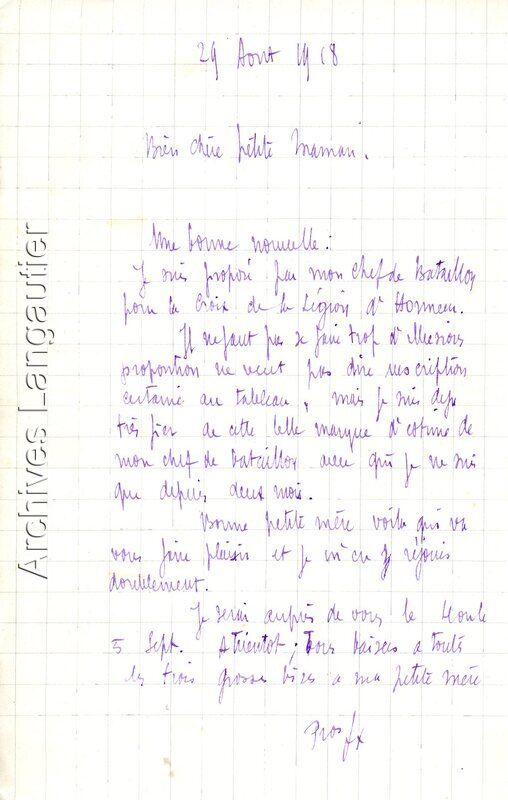 29 Aout 1918
Bien chère petite maman.
Une bonne nouvelle :
Je suis proposé par mon chef de Bataillon
pour la Croix de la Légion d'Honneur.
Il ne faut pas se faire trop d'illusions
proposition ne veut pas dire inscription
certaine au tableau, mais je suis deja
très fier de cette belle marque d'estime de
mon chef de bataillon avec qui je ne suis
que depuis deux mois.
Bonne petite mère voila qui va
vous faire plaisir et je m'en réjouis
doublement.
Je serai auprès de vous le 4 ou le
5 Sept. A bientot; Bons baisers a touts
les trois grosses bises a ma petite mère
Archives Langautier